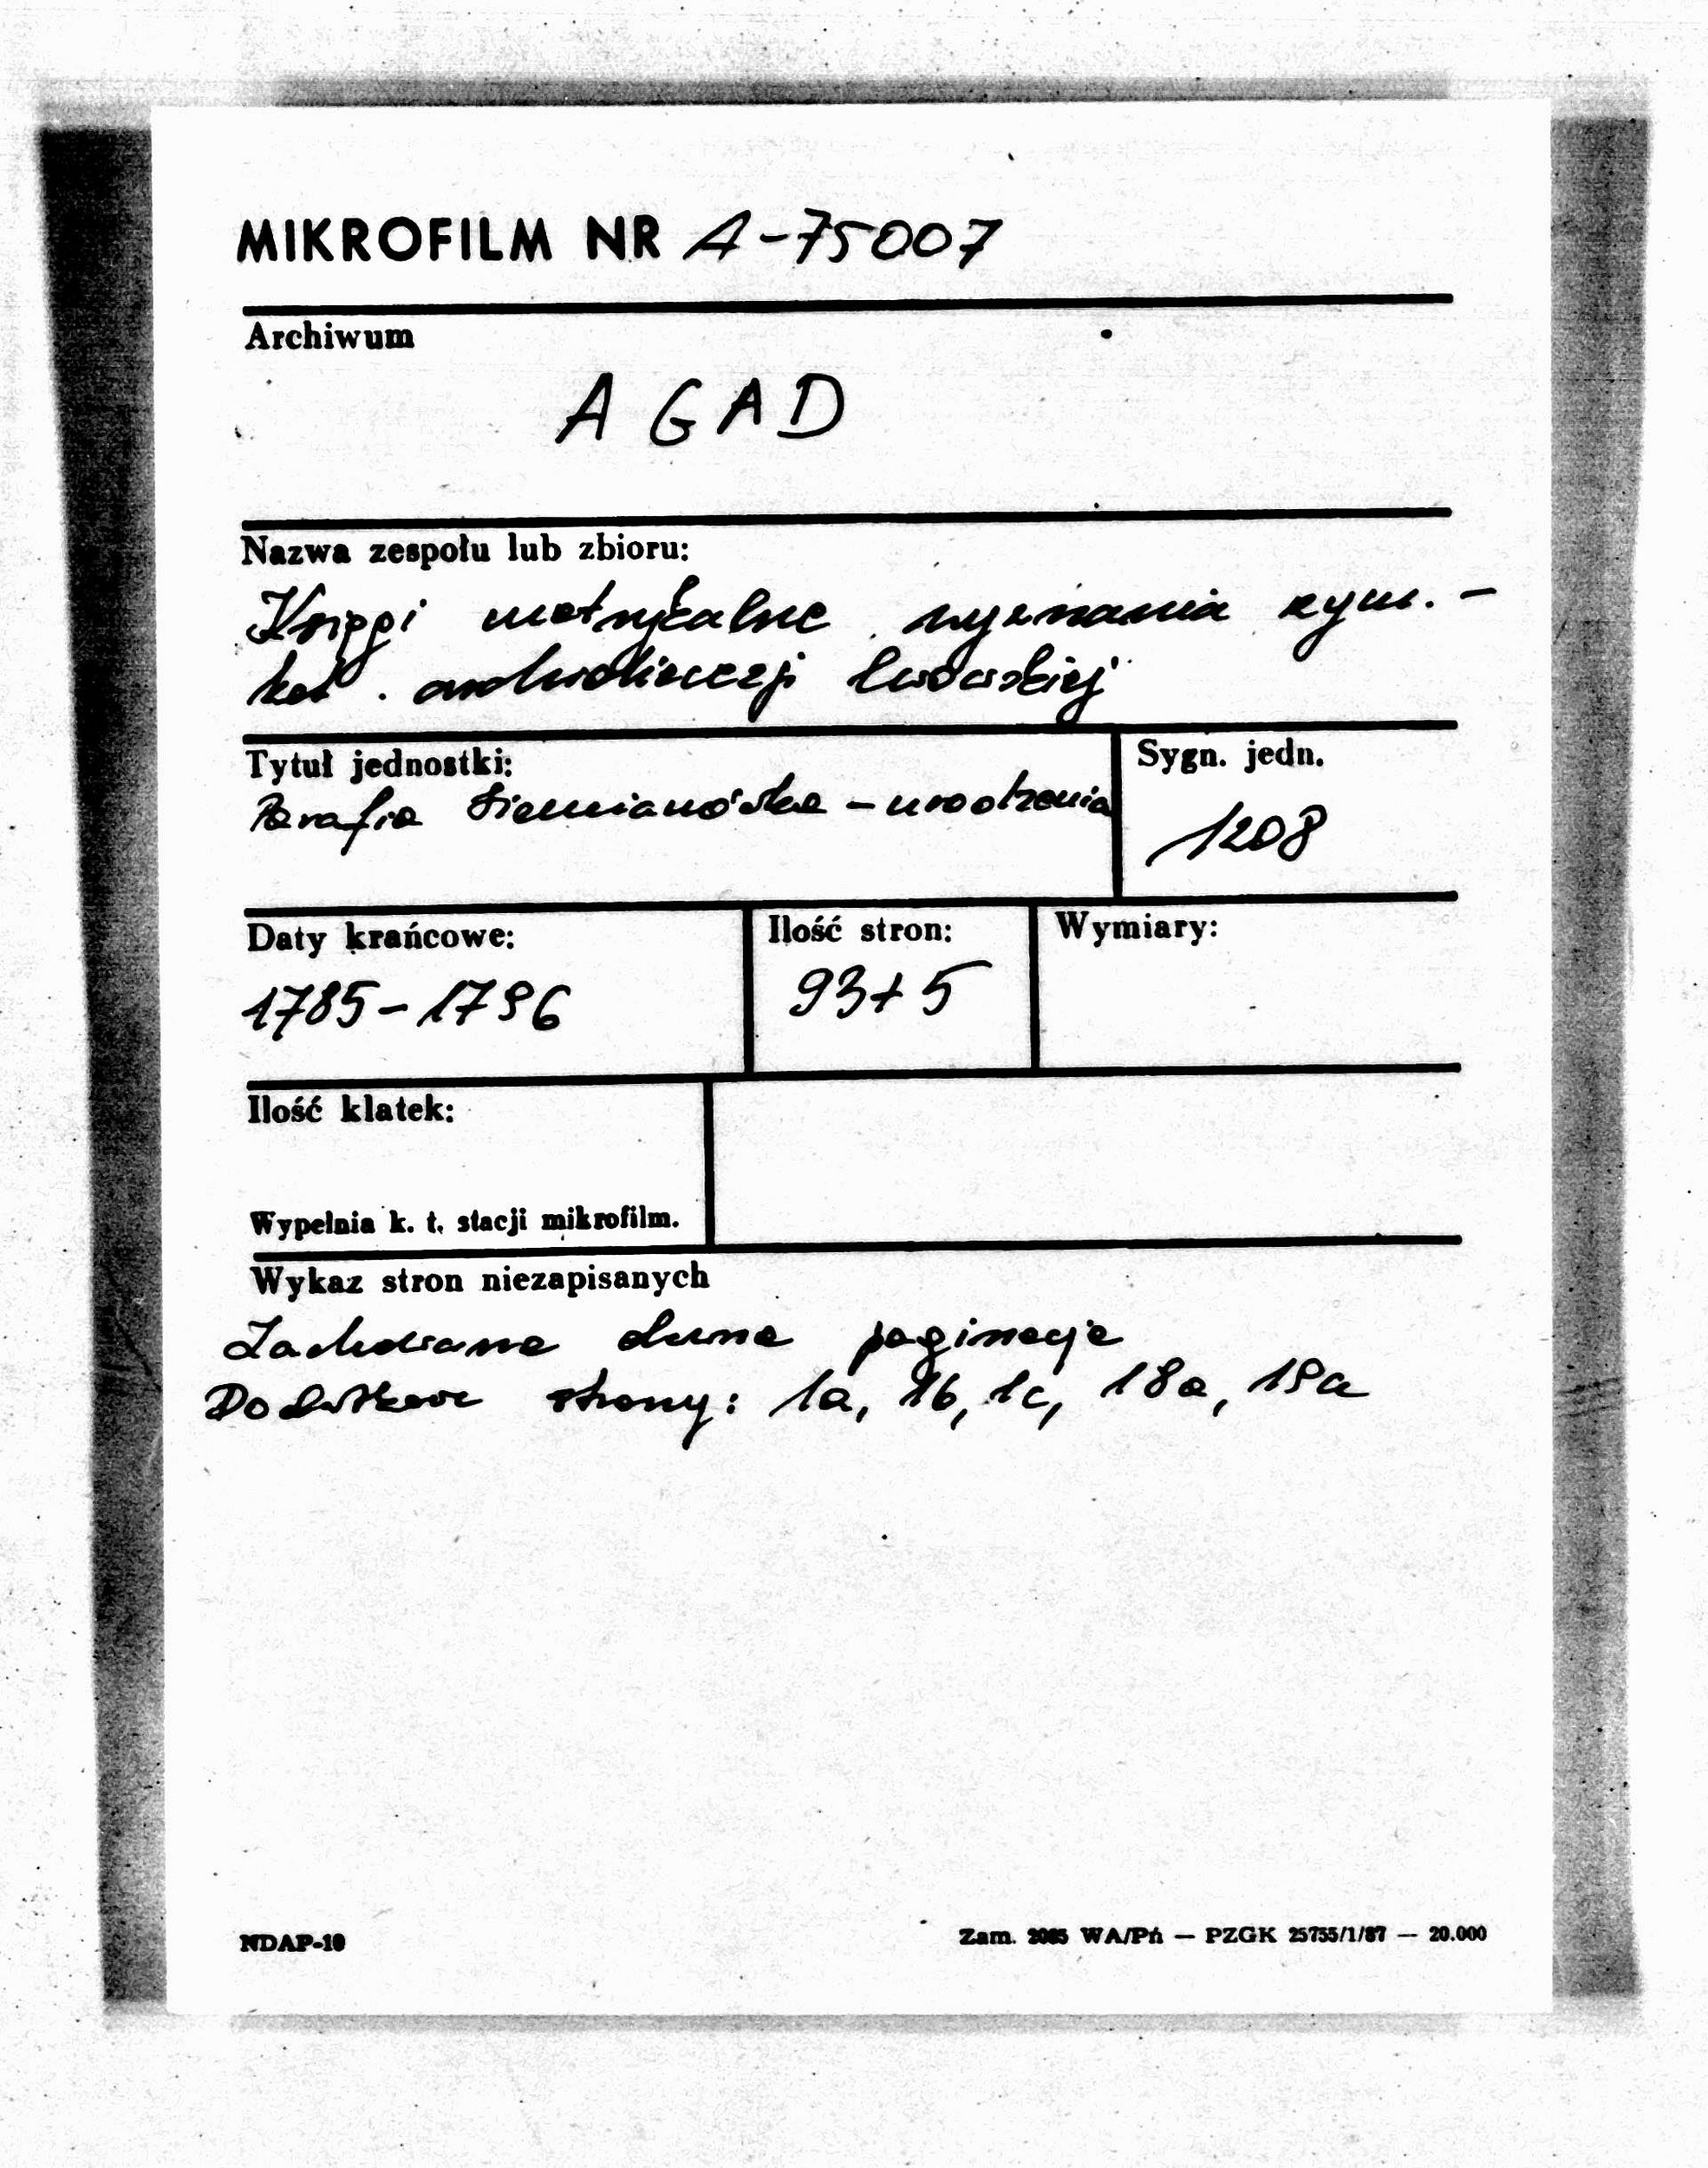 MIKROFILM NR A-75007
Archiwum
AGAD
Nazwa zespołu lub zbioru:
Księgi metrykalne wyznania rzym.-
kat. archidiecezji lwowskiej
Tytuł jednostki:
Parafia Siemianówka - urodzenia
Sygn. jedn.
1208
Daty krańcowe:
1785-1796
Ilość stron:
93+5
Wymiary:
Ilość klatek:
Wypełnia k. t. stacji mikrofilm.
Wykaz stron niezapisanych
Zachowana dawna paginacja
Dodatkowe strony: 1a, 1b, 1c, 18a, 19a
NDAP-10
Zam. 2085 WA/Pń — PZGK 25755/1/87 — 20.000